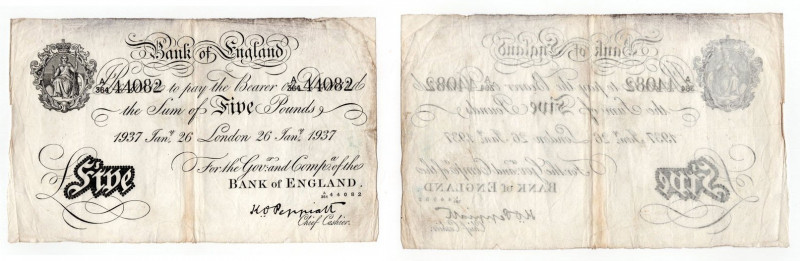 Bank of England
A/364 44082 to pay the Bearer on Demand A/364 44082
the Sum of Five Pounds
1937 Jany. 26 London 26 Jany. 1937
For the Govr. and Compa. of the
BANK of ENGLAND.
A/364 44082
Five
K.O. Peppiatt
Chief Cashier.